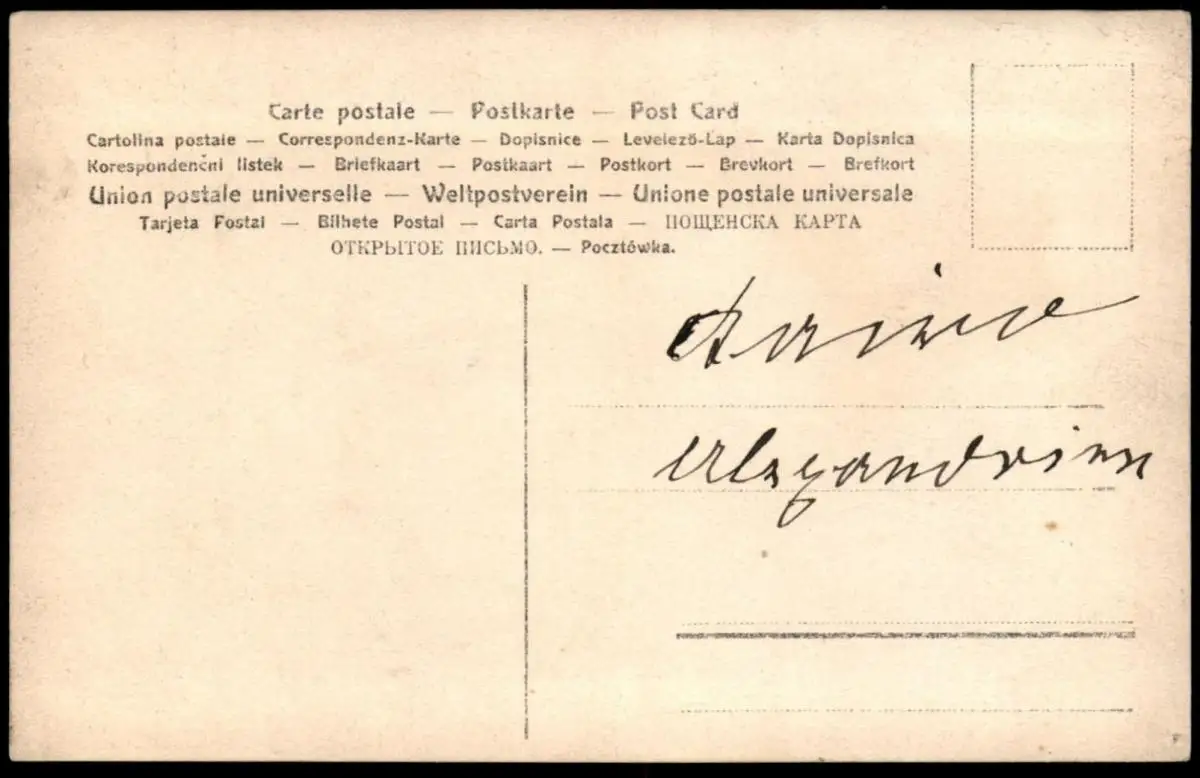 Carte postale — Postkarte — Post Card
Cartolina postale — Correspondenz-Karte — Dopisnice — Levelező-Lap — Karta Dopisnica
Korespondenční lístek — Briefkaart — Postkaart — Postkort — Brevkort — Brefkort
Union postale universelle — Weltpostverein — Unione postale universale
Tarjeta Postal — Bilhete Postal — Carta Postala — ПОЩЕНСКА КАРТА
ОТКРЫТОЕ ПИСЬМО. — Pocztówka.